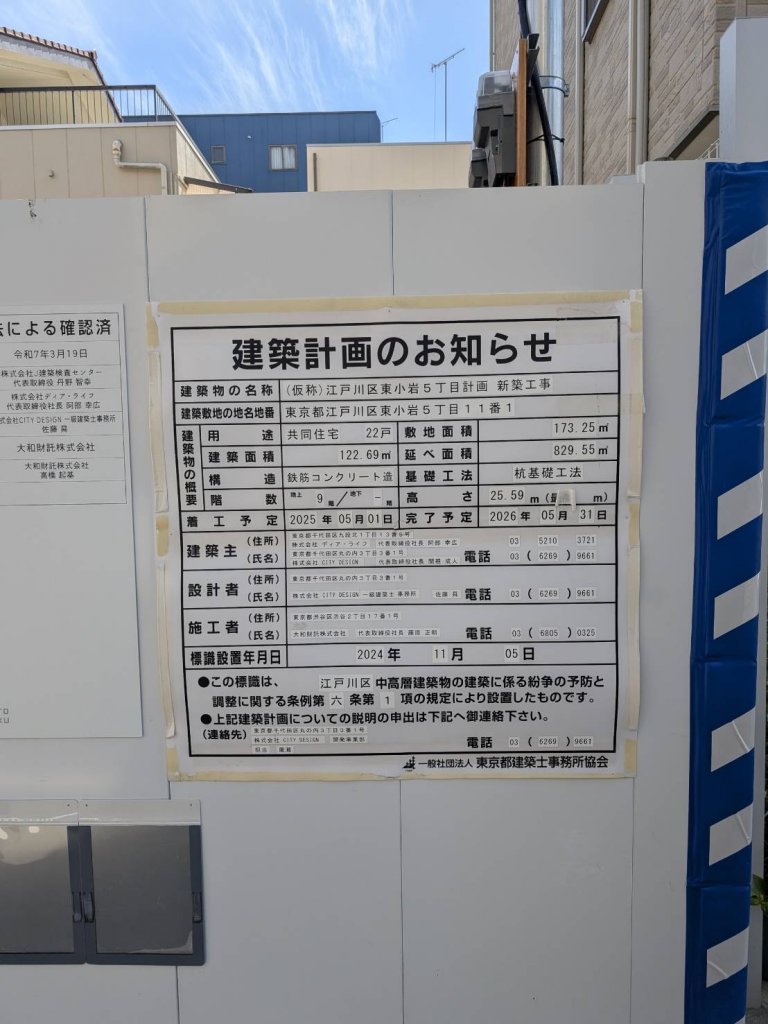 法による確認済
令和7年3月19日
株式会社J建築検査センター
代表取締役 丹野 智幸
株式会社ディア・ライフ
代表取締役社長 阿部 幸広
株式会社CITY DESIGN 一級建築士事務所
佐藤 晃
大和財託株式会社
大和財託株式会社
高橋 起基
建築計画のお知らせ
建築物の名称 (仮称)江戸川区東小岩5丁目計画 新築工事
建築敷地の地名地番 東京都江戸川区東小岩5丁目11番1
建築物の概要
用途 共同住宅 22戸 敷地面積 173.25㎡
建築面積 122.69㎡ 延べ面積 829.55㎡
構造 鉄筋コンクリート造 基礎工法 杭基礎工法
階数 地上 9階/地下 -階 高さ 25.59 m(最 m)
着工予定 2025年05月01日 完了予定 2026年05月31日
建築主 (住所) 東京都千代田区九段北1丁目13番5号
株式会社 ディア・ライフ 代表取締役社長 阿部 幸広 03 5210 3721
東京都千代田区丸の内3丁目3番1号
(氏名) 株式会社 CITY DESIGN 代表取締役社長 関根 成人 電話 03 (6269) 9661
設計者 (住所) 東京都千代田区丸の内3丁目3番1号
(氏名) 株式会社 CITY DESIGN 一級建築士 事務所 佐藤 晃 電話 03 (6269) 9661
施工者 (住所) 東京都渋谷区渋谷2丁目17番1号
(氏名) 大和財託株式会社 代表取締役社長 藤原 正明 電話 03 (6805) 0325
標識設置年月日 2024年 11月 05日
●この標識は、 江戸川区 中高層建築物の建築に係る紛争の予防と
調整に関する条例第 六 条第 1 項の規定により設置したものです。
●上記建築計画についての説明の申出は下記へ御連絡下さい。
(連絡先) 東京都千代田区丸の内3丁目3番1号
株式会社 CITY DESIGN 開発事業部 電話 03 (6269) 9661
担当
一般社団法人 東京都建築士事務所協会